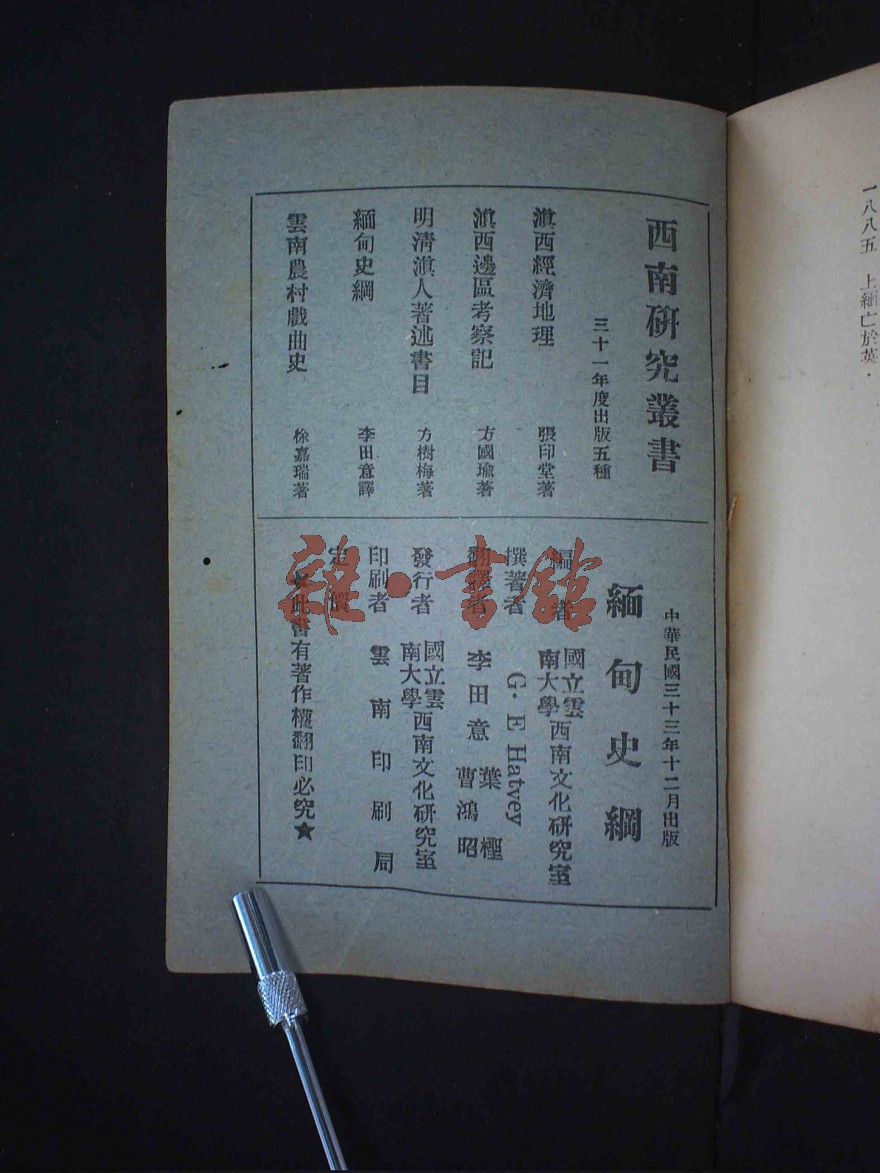 一八八五　上緬亡於英．
西南硏究叢書
三十一年度出版五種
滇西經濟地理　張印堂著
滇西邊區考察記　方國瑜著
明清滇人著述書目　方樹梅著
緬甸史綱　李田意譯
雲南農村戲曲史　徐嘉瑞著
中華民國三十三年十二月出版
緬甸史綱
編者　國立雲南大學西南文化硏究室
撰著者　G. E Hatvey
翻譯者　李田意　葉檉　曹鴻昭
發行者　國立雲南大學西南文化硏究室
印刷者　雲南印刷局
定價
★此書有著作權翻印必究★
雜·書館